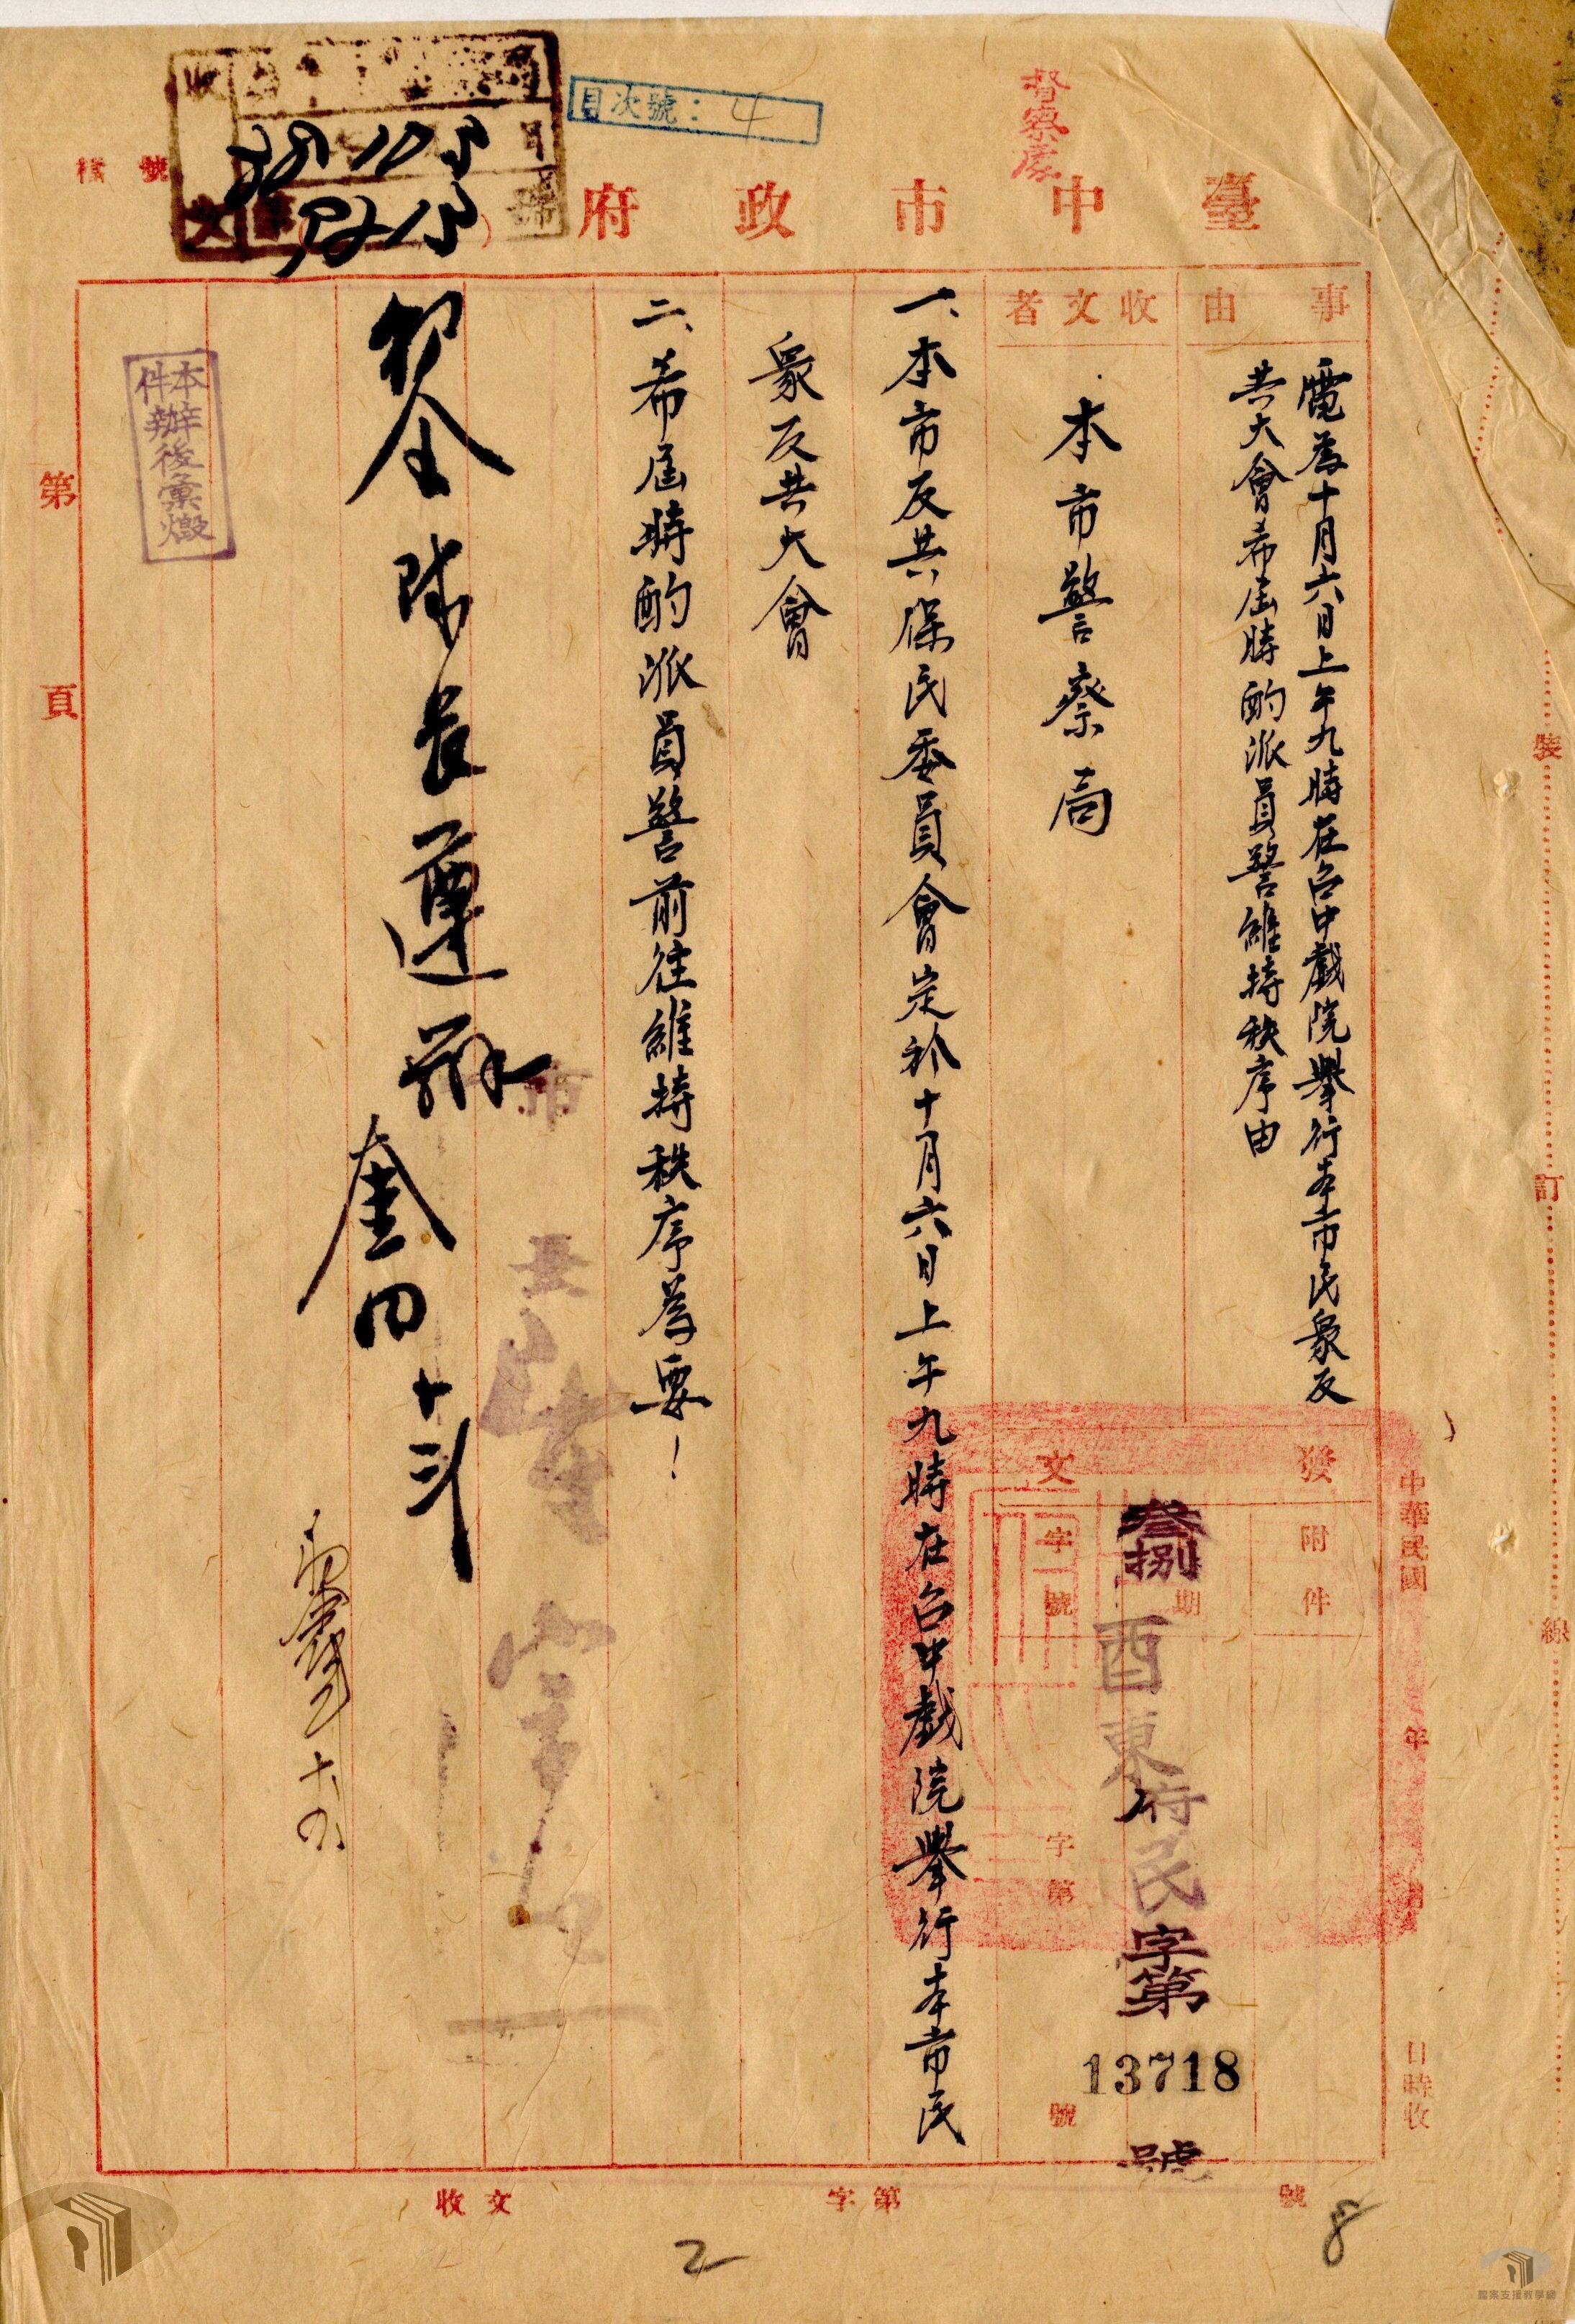 目次號：4
督察處
臺中市政府
檔號
38 10 5
5215
事由
電為十月六日上午九時在台中戲院舉行本市民衆反
共大會希屆時酌派員警維持秩序由
收文者
本市警察局
發文
附件
期
字號
字第
號
叁捌
酉東府民字第
13718
號
中華民國
年
日時收
一、本市反共保民委員會定於十月六日上午九時在台中戲院舉行本市民
衆反共大會
二、希屆時酌派員警前往維持秩序為要！
市長
隊長遵辦
本件辦後彙燬
第
頁
裝
訂
線
收文
字第
號
2
8
檔案支援教學網